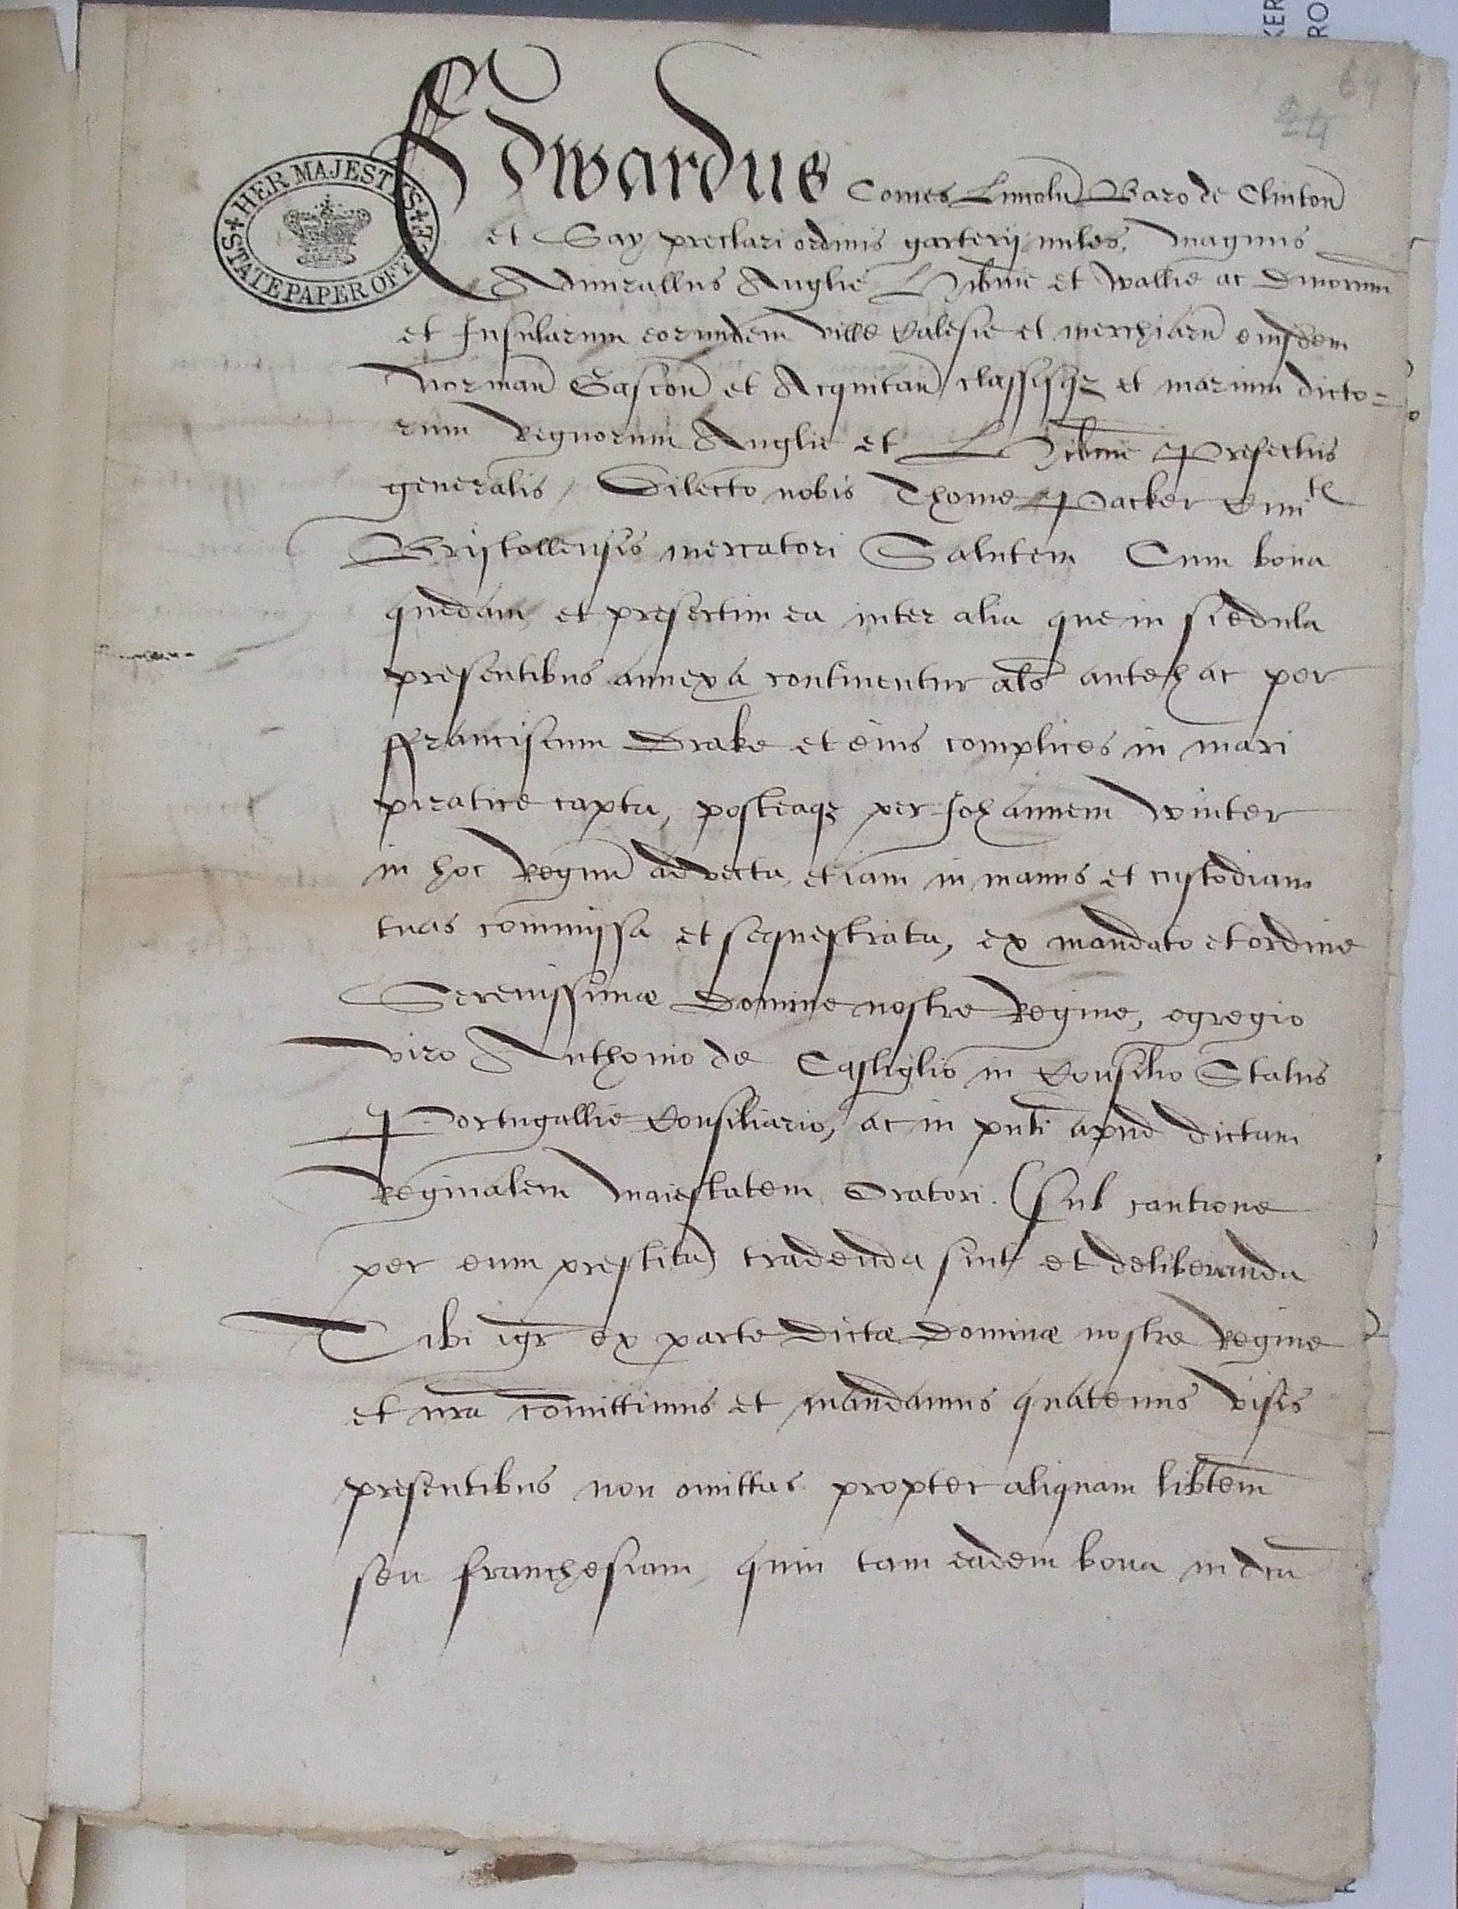 64
24
HER MAJESTY'S STATE PAPER OFF
Edwardus Comes Lincoln Baro de Clinton
et Say preclari ordinis garterij miles, magnus
Admirallus Anglie Hibnie et Wallie ac Dniorum
et Insularum eorundem ville Calesie et merchiaru eiusdem
Norman Gascon et Acquitan classisq3 et marium dicto=
rum Regnorum Anglie et Hibnie Prefectus
generalis, Dilecto nobis Thome Packer
Bristollensis mercatori Salutem Cum bona
quedam et presertim ea inter alia que in scedula
presentibus annexa continentur als antehac per
ffranciscum Drake et eius complices in mari
piratice capta, posteaq3 per Johannem Winter
in hoc Regnu advecta, etiam in manus et custodiam
tuas commissa et sequestrata, ex mandato et ordine
Serenissimæ Domine nostre Regine, egregio
viro Anthonio de Castiglio in Consilio Status
Portugallie Consiliario, ac in pnti apud dictam
Reginalem Maiestatem Oratori. (sub cautione
per eum prestita) tradenda sint et deliberanda
Tibi igr ex parte dictæ Dominæ nostre Regine
et nra comittimus et mandamus quatenus visis
presentibus non omittas propter aliquam libtem
seu franchesiam, quin tam eadem bona in dca